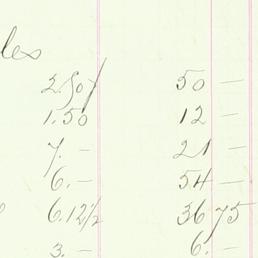 les
2.50 50 —
1.50 12 —
7. — 21 —
6. — 54 —
6.12 1/2 36 75
3. — 6. —